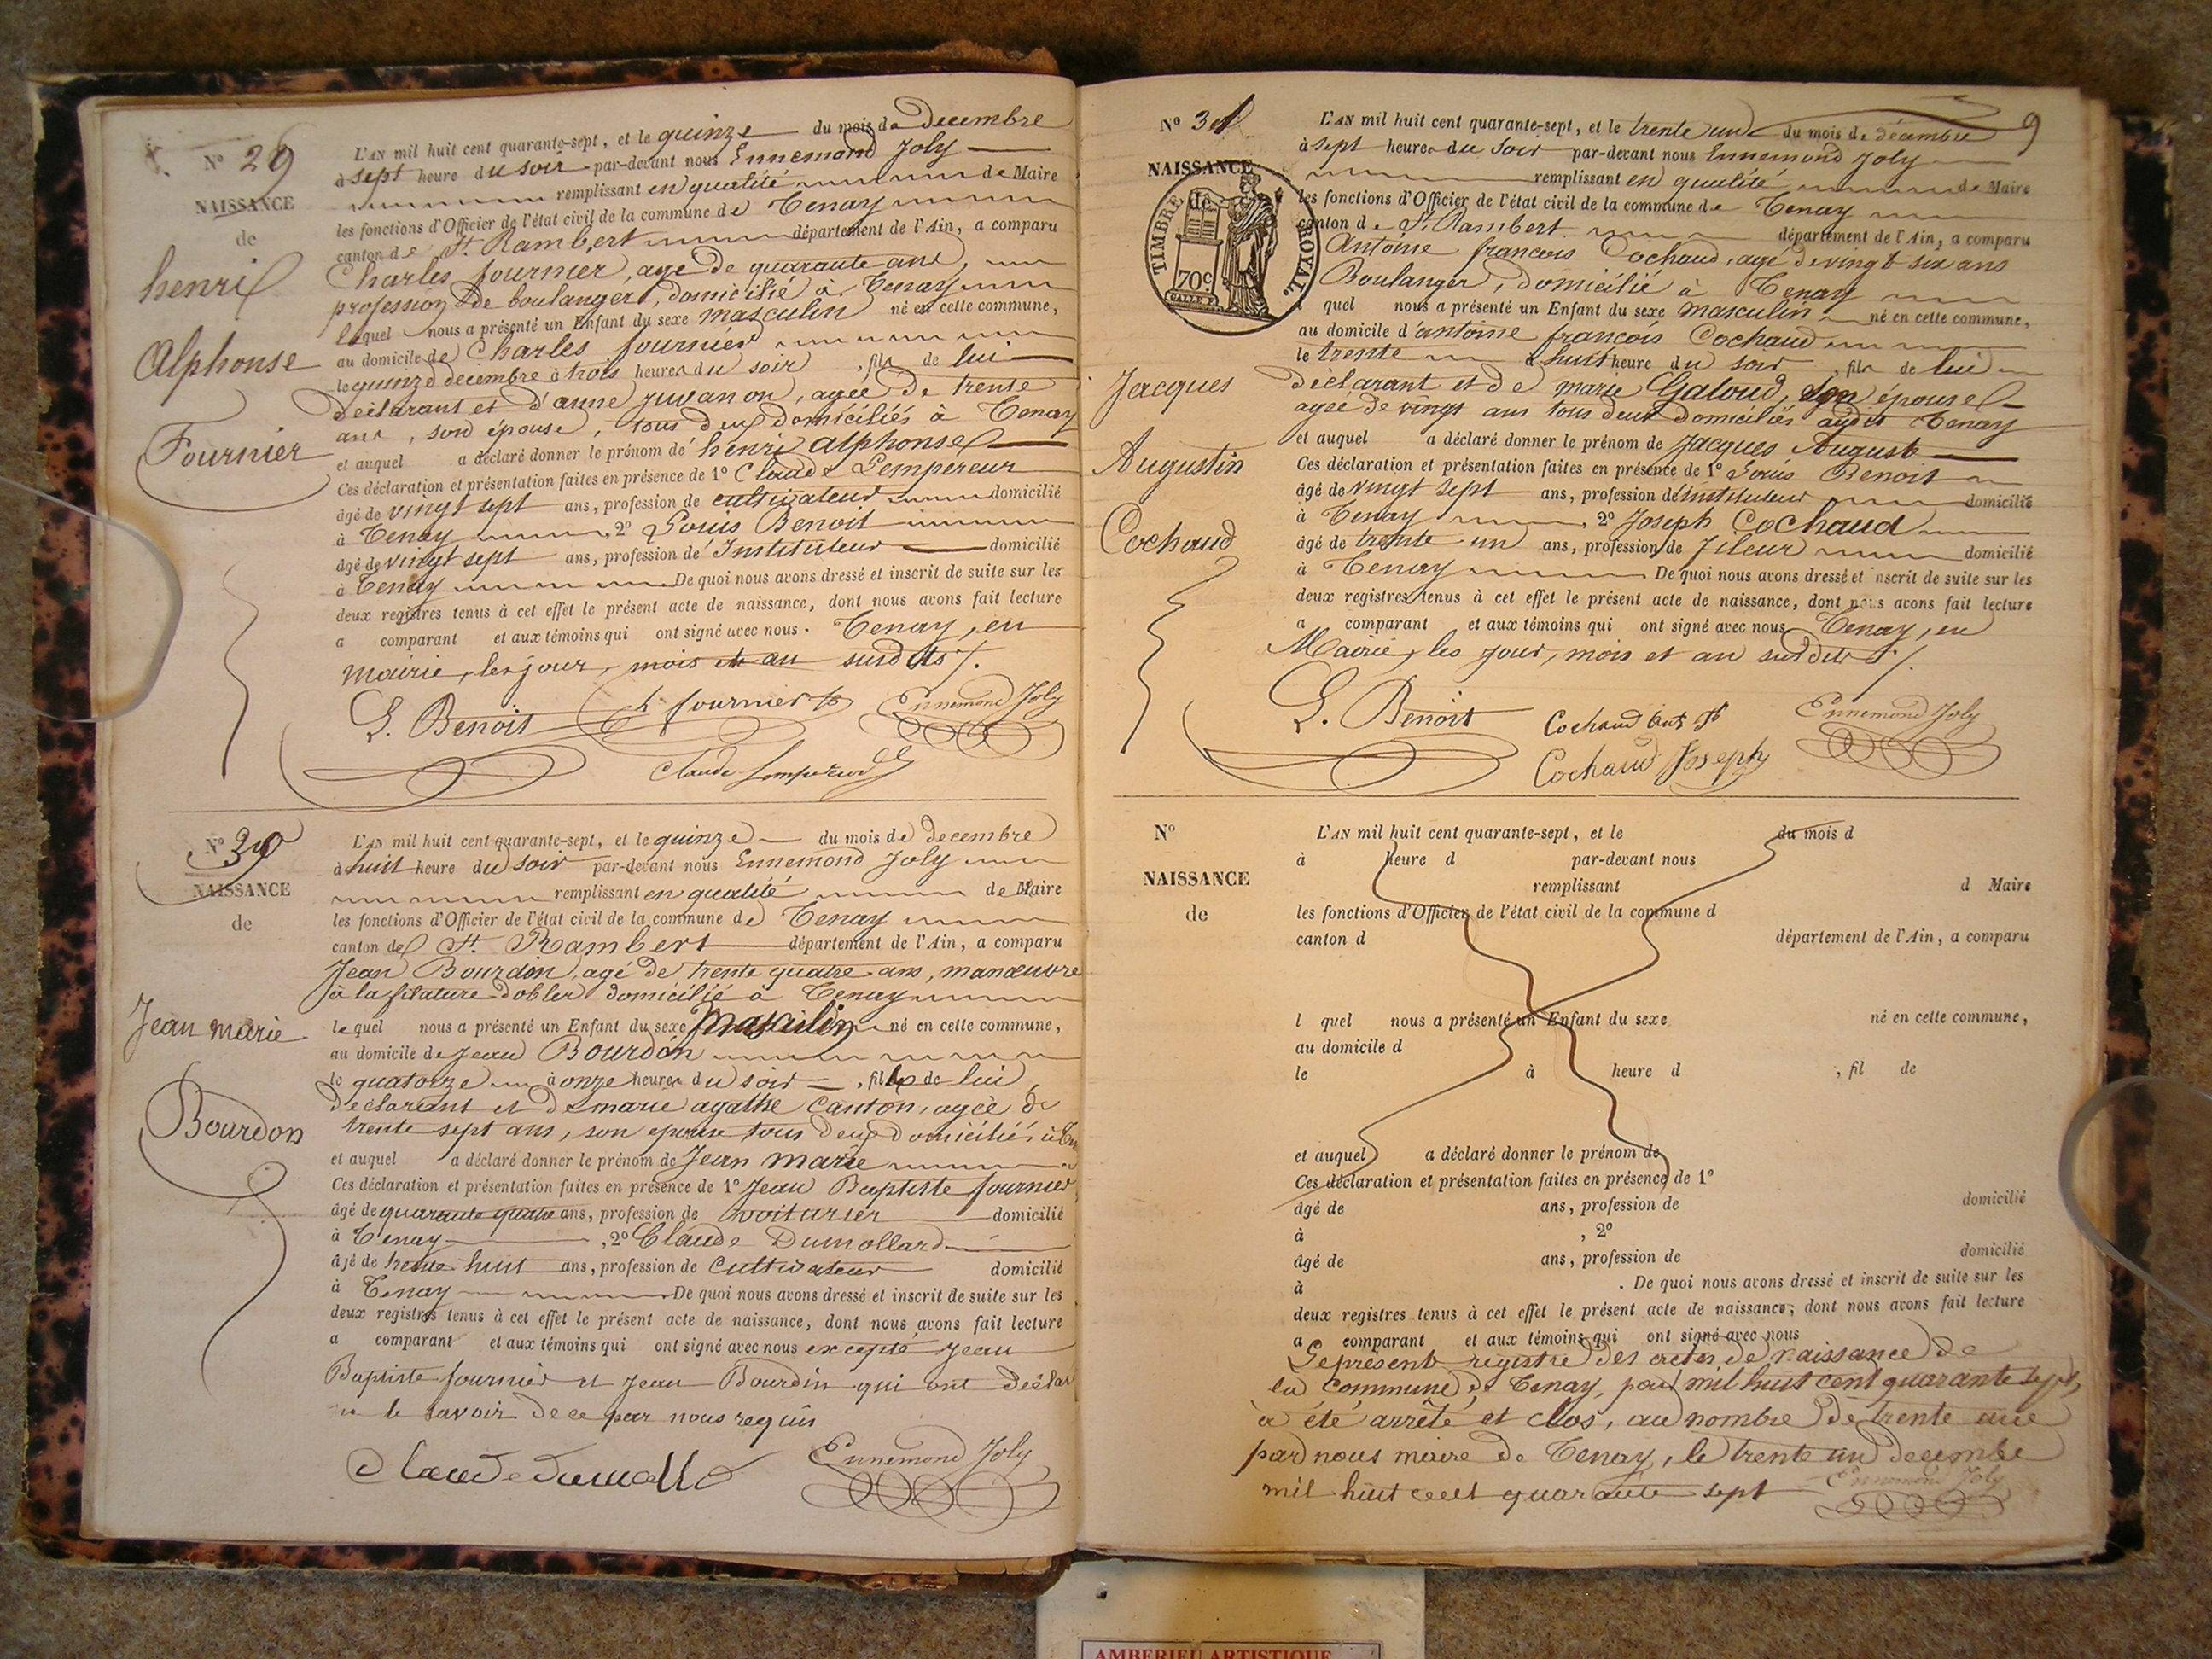 Nº 29
NAISSANCE
de
henri
Alphonse
Fournier
L'AN mil huit cent quarante-sept, et le quinze du mois de decembre
à sept heure du soir par-devant nous Ennemond Joly
remplissant en qualité de Maire
les fonctions d'Officier de l'état civil de la commune de Tenay
canton de St. Rambert département de l'Ain, a comparu
Charles fournier, agé de quarante ans,
profession de boulanger, domicilié à Tenay
lequel nous a présenté un Enfant du sexe masculin né en cette commune,
au domicile de Charles fournier
le quinze decembre à trois heures du soir, fils de lui
déclarant et d'anne juvanon, agée de trente
ans, son épouse, tous deux domiciliés à Tenay
et auquel a déclaré donner le prénom de henri alphonse
Ces déclaration et présentation faites en présence de 1º Claude Lempereur
âgé de vingt sept ans, profession de cultivateur domicilié
à Tenay, 2º Louis Benoit
âgé de vingt sept ans, profession de Instituteur domicilié
à Tenay De quoi nous avons dressé et inscrit de suite sur les
deux registres tenus à cet effet le présent acte de naissance, dont nous avons fait lecture
a comparant et aux témoins qui ont signé avec nous. Tenay, en
mairie, les jour, mois et an susdits.
L. Benoit fournier Ennemond Joly
Claude Lempereur
Nº 30
NAISSANCE
de
Jean marie
Bourdon
L'AN mil huit cent quarante-sept, et le quinze du mois de decembre
à huit heure du soir par-devant nous Ennemond Joly
remplissant en qualité de Maire
les fonctions d'Officier de l'état civil de la commune de Tenay
canton de St. Rambert département de l'Ain, a comparu
Jean Bourdon, agé de trente quatre ans, manœuvre
à la filature dobler domicilié à Tenay
lequel nous a présenté un Enfant du sexe Masculin né en cette commune,
au domicile de Jean Bourdon
le quatorze à onze heures du soir, fils de lui
declarant et de marie agathe Canton, agée de
trente sept ans, son epouse tous deux domiciliés à
et auquel a déclaré donner le prénom de Jean marie
Ces déclaration et présentation faites en présence de 1º Jean Baptiste fournier
âgé de quarante quatre ans, profession de voiturier domicilié
à Tenay, 2º Claude Dumollard
âgé de trente huit ans, profession de Cultivateur domicilié
à Tenay De quoi nous avons dressé et inscrit de suite sur les
deux registres tenus à cet effet le présent acte de naissance, dont nous avons fait lecture
a comparant et aux témoins qui ont signé avec nous excepté Jean
Baptiste fournier et Jean Bourdin qui ont déclaré
ne le savoir de ce par nous requis
Ennemond Joly
9
Nº 31
NAISSANCE
de
TIMBRE ROYAL
70c
Jacques
Augustin
Cochaud
L'AN mil huit cent quarante-sept, et le trente un du mois de décembre
à sept heures du soir par-devant nous Ennemond Joly
remplissant en qualité de Maire
les fonctions d'Officier de l'état civil de la commune de Tenay
canton de St. Rambert département de l'Ain, a comparu
Antoine francois Cochaud, agé de vingt six ans
Boulanger, domicilié à Tenay
quel nous a présenté un Enfant du sexe masculin né en cette commune,
au domicile d'antoine françois Cochaud
le trente à huit heure du soir, fils de lui
déclarant et de marie Galoud, son épouse
agée de vingt ans tous deux domiciliés audit Tenay
et auquel a déclaré donner le prénom de Jacques August
Ces déclaration et présentation faites en présence de 1º Louis Benoit
âgé de vingt sept ans, profession de Instituteur domicilié
à Tenay, 2º Joseph Cochaud
âgé de trente un ans, profession de fileur domicilié
à Tenay De quoi nous avons dressé et inscrit de suite sur les
deux registres tenus à cet effet le présent acte de naissance, dont nous avons fait lecture
a comparant et aux témoins qui ont signé avec nous Tenay, en
Mairie, les jour, mois et an susdits.
L. Benoit Cochaud Ant Ennemond Joly
Cochaud Joseph
Nº
NAISSANCE
de
L'AN mil huit cent quarante-sept, et le du mois d
à heure d par-devant nous
remplissant d Maire
les fonctions d'Officier de l'état civil de la commune d
canton d département de l'Ain, a comparu
l quel nous a présenté un Enfant du sexe né en cette commune,
au domicile d
le à heure d , fil de
et auquel a déclaré donner le prénom de
Ces déclaration et présentation faites en présence de 1º
âgé de ans, profession de domicilié
à , 2º
âgé de ans, profession de domicilié
à . De quoi nous avons dressé et inscrit de suite sur les
deux registres tenus à cet effet le présent acte de naissance, dont nous avons fait lecture
a comparant et aux témoins qui ont signé avec nous
Le présent registre des actes de naissance de
la commune de Tenay, pour mil huit cent quarante sept,
a été arrêté et clos, au nombre de trente une
par nous maire de Tenay, le trente un decembre
mil huit cent quarante sept Ennemond Joly
AMBERIEU ARTISTIQUE